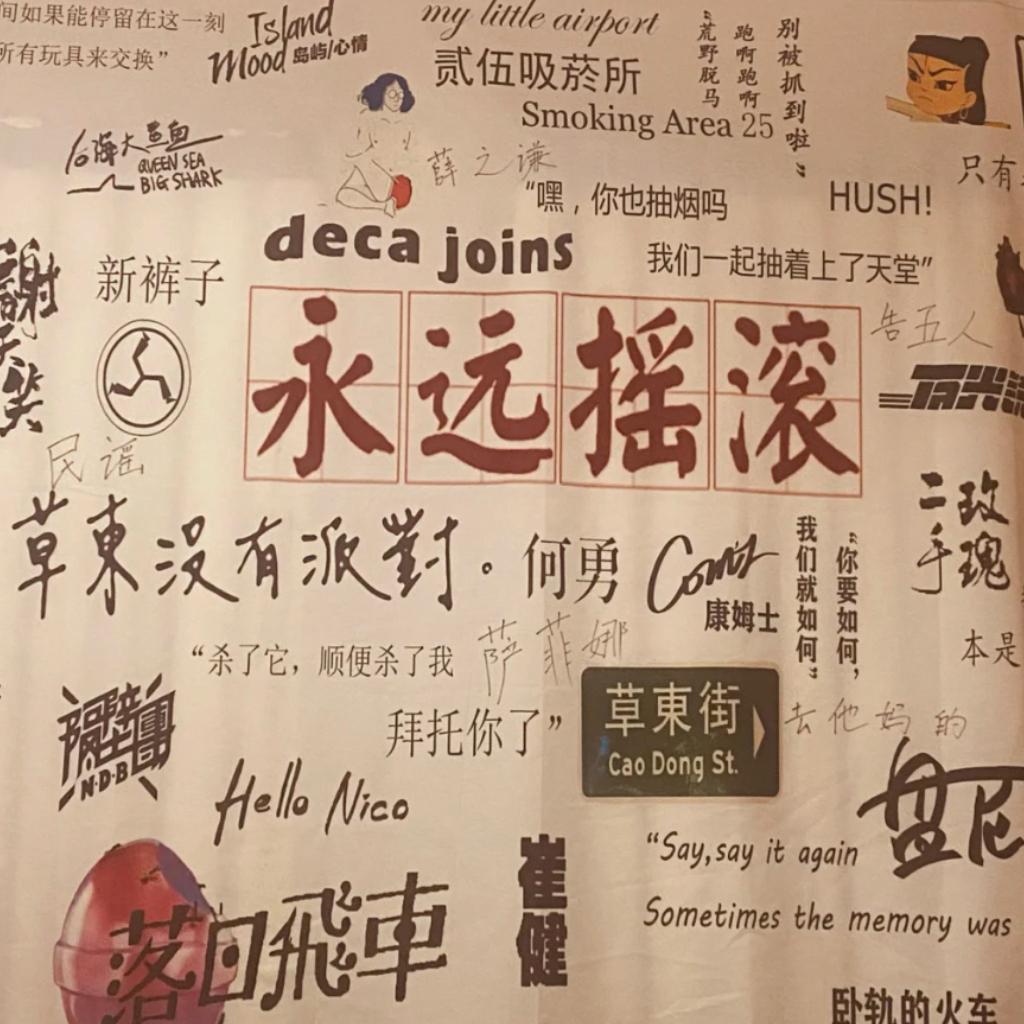 间如果能停留在这一刻
所有玩具来交换”
Island
Mood 岛屿/心情
my little airport
贰伍吸菸所
Smoking Area 25
“荒野脱马
跑啊跑啊
别被抓到啦”
台海大鲨鱼
QUEEN SEA
BIG SHARK
薛之谦
“嘿，你也抽烟吗
我们一起抽着上了天堂”
HUSH!
只有
deca joins
新裤子
謝天笑
永远摇滚
告五人
民谣
草東没有派對。
何勇
康姆士
“你要如何，
我们就如何”
二手玫瑰
“杀了它，顺便杀了我
拜托你了”
萨菲娜
本是
草東街
Cao Dong St.
去他妈的
隔壁團
N·D·B
Hello Nico
盘尼
落日飛車
崔健
“Say,say it again
Sometimes the memory was
卧轨的火车